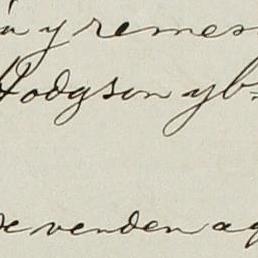 y remes
Hodgson y b
se venden aq